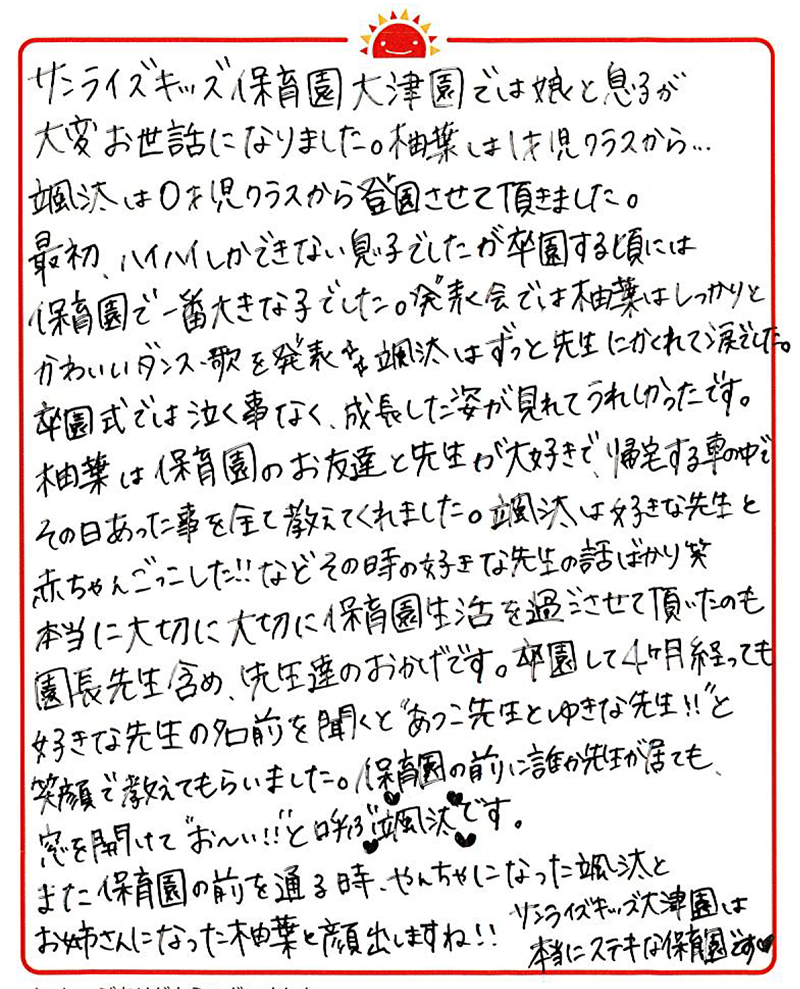 サンライズキッズ保育園大津園では娘と息子が
大変お世話になりました。柚葉は1才児クラスから…
颯汰は0才児クラスから登園させて頂きました。
最初、ハイハイしかできない息子でしたが卒園する頃には
保育園で一番大きな子でした。発表会では柚葉はしっかりと
かわいいダンス・歌を発表 颯汰はずっと先生にかくれて涙でした。
卒園式では泣く事なく、成長した姿が見れてうれしかったです。
柚葉は保育園のお友達と先生が大好きで、帰宅する車の中で
その日あった事を全て教えてくれました。颯汰は好きな先生と
赤ちゃんごっこした!!などその時の好きな先生の話ばかり笑
本当に大切に大切に保育園生活を過ごさせて頂いたのも
園長先生含め、先生達のおかげです。卒園して4ヶ月経っても
好きな先生の名前を聞くと"あっこ先生とゆきな先生!!"と
笑顔で教えてもらいました。保育園の前に誰か先生が居ても、
窓を開けて"お〜い!!"と呼ぶ"颯汰"です。
また保育園の前を通る時、やんちゃになった颯汰と
お姉さんになった柚葉と顔出しますね!!
サンライズキッズ大津園は
本当にステキな保育園です♥